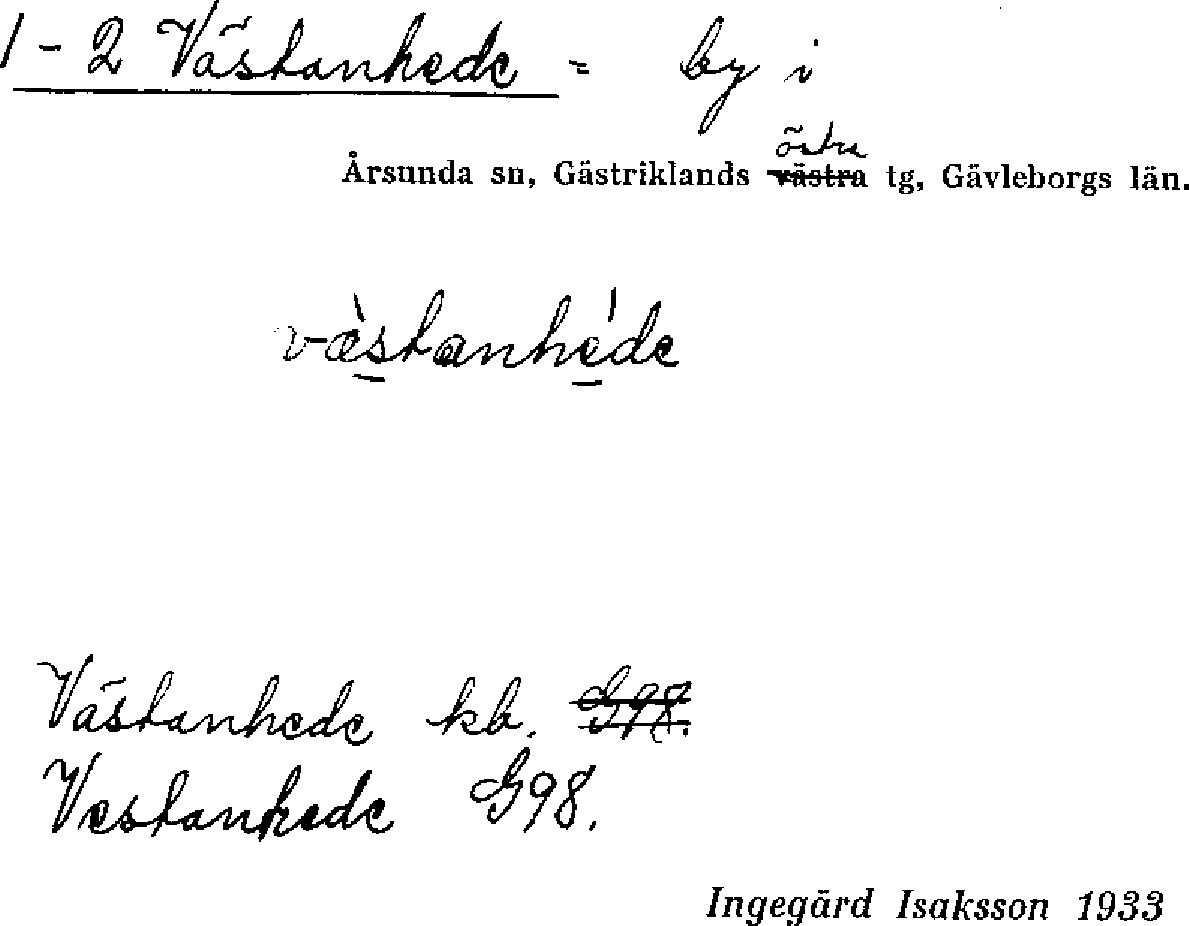 1-2 Västanhede = by i
östra
Årsunda sn, Gästriklands västra tg, Gävleborgs län.
væ̀stanhéde
Västanhede kb. G98.
Vestanhede G98.
Ingegärd Isaksson 1933